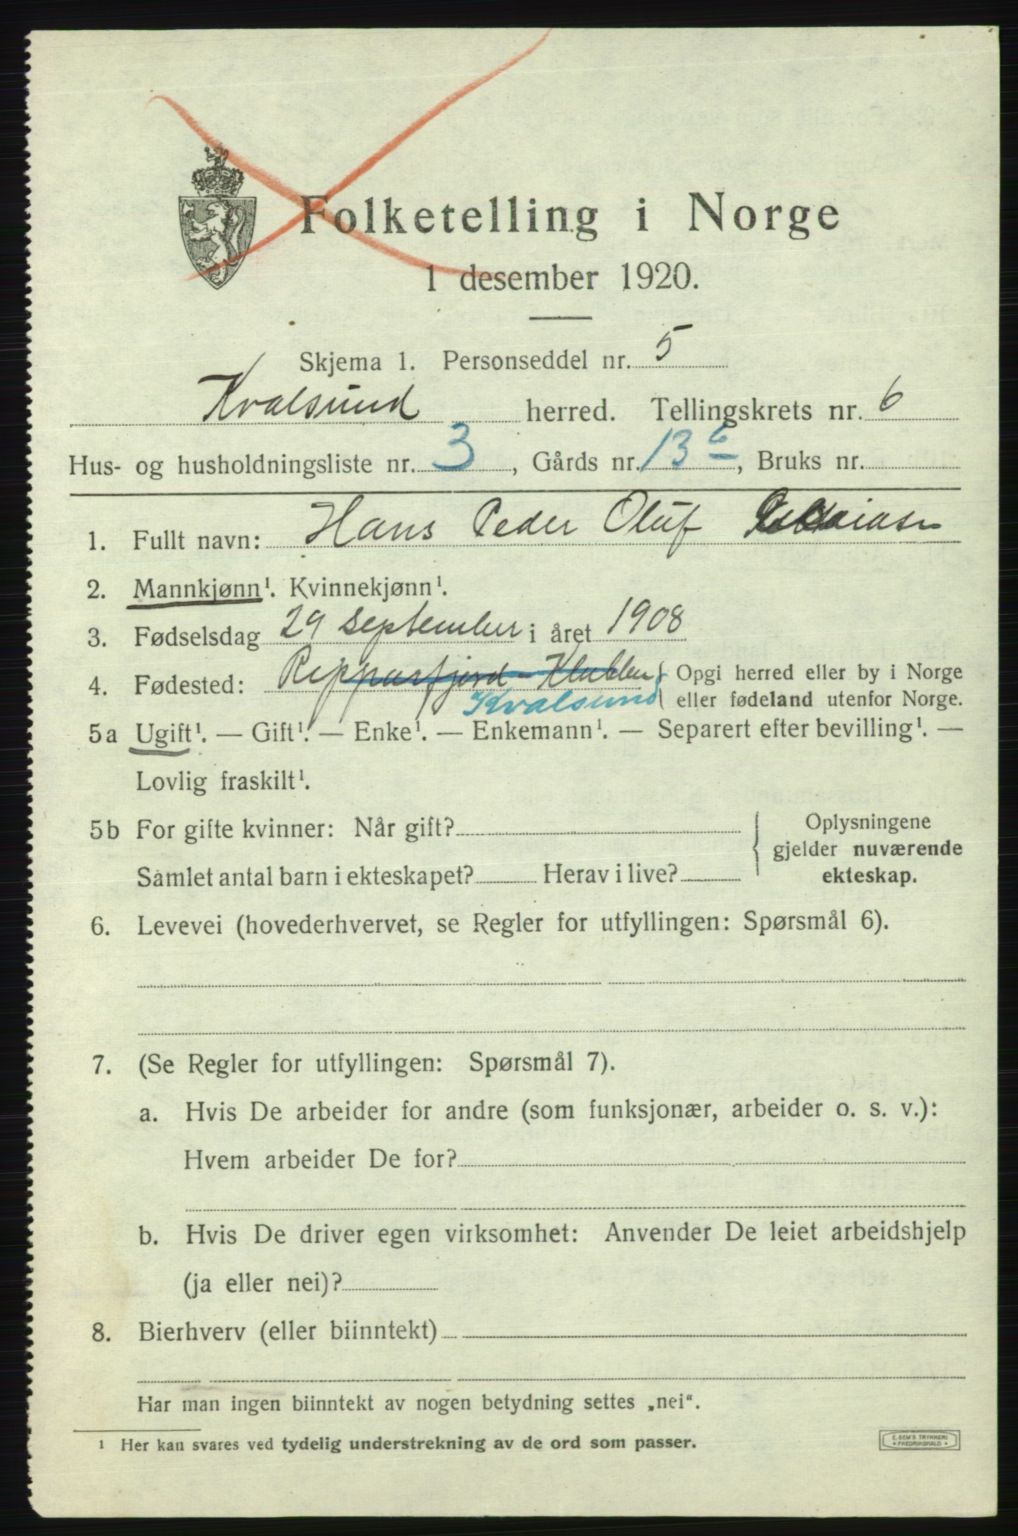 Folketelling i Norge
1 desember 1920.
Skjema 1. Personseddel nr. 5
Kvalsund herred. Tellingskrets nr. 6
Hus- og husholdningsliste nr. 3, Gårds nr. 13 6, Bruks nr.
1. Fullt navn: Hans Peder Oluf
2. Mannkjønn¹. Kvinnekjønn¹.
3. Fødselsdag 29 september i året 1908
4. Fødested: Repparfjord - Klubben Opgi herred eller by i Norge
Kvalsund eller fødeland utenfor Norge.
5a Ugift¹. — Gift¹. — Enke¹. — Enkemann¹. — Separert efter bevilling¹. —
Lovlig fraskilt¹.
5b For gifte kvinner: Når gift? Oplysningene
gjelder nuværende
Samlet antal barn i ekteskapet? Herav i live? ekteskap.
6. Levevei (hovederhvervet, se Regler for utfyllingen: Spørsmål 6).
7. (Se Regler for utfyllingen: Spørsmål 7).
a. Hvis De arbeider for andre (som funksjonær, arbeider o. s. v.):
Hvem arbeider De for?
b. Hvis De driver egen virksomhet: Anvender De leiet arbeidshjelp
(ja eller nei)?
8. Bierhverv (eller biinntekt)
Har man ingen biinntekt av nogen betydning settes „nei".
¹ Her kan svares ved tydelig understrekning av de ord som passer.
E. SEM'S TRYKKERI
FREDRIKSHALD